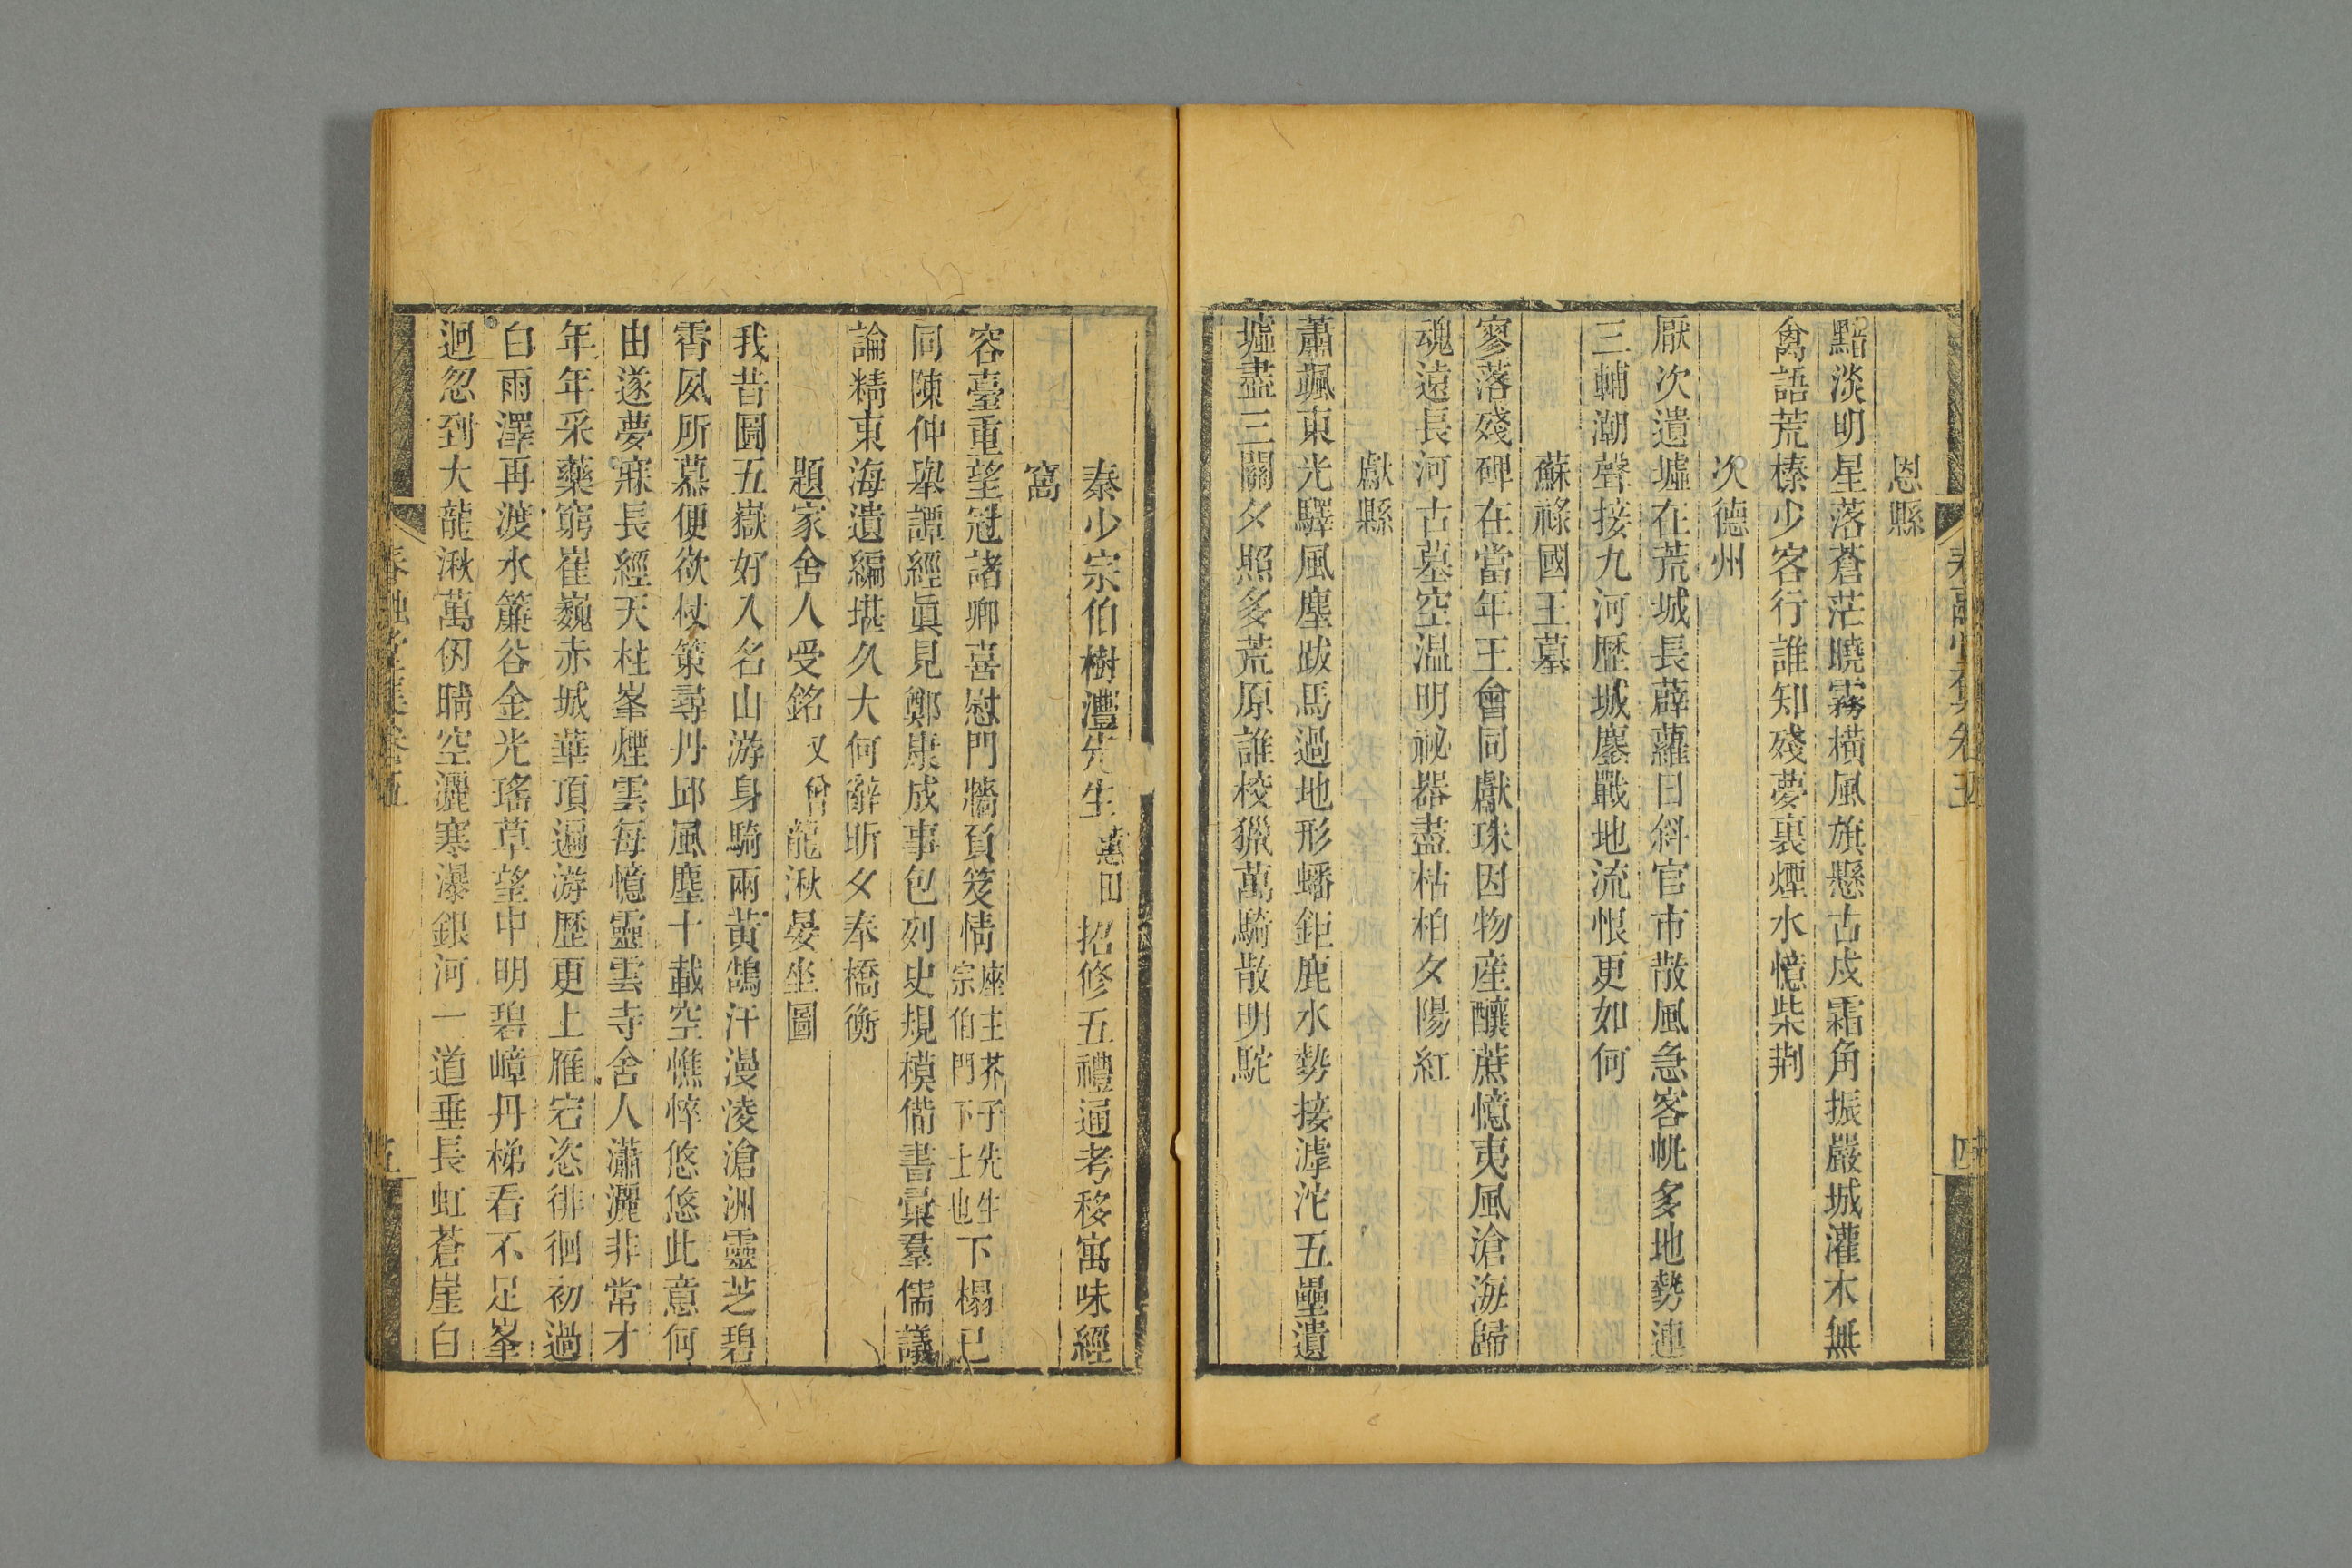 恩縣
黯淡明星落蒼茫曉霧橫風旗懸古戍霜角振嚴城灌木無
禽語荒榛少客行誰知殘夢裏煙水憶柴荆
次德州
厭次遺墟在荒城長薜蘿日斜官市散風急客帆多地勢連
三輔潮聲接九河歷城鏖戰地流恨更如何
蘇祿國王墓
寥落殘碑在當年王會同獻珠因物産釀蔗憶夷風滄海歸
魂遠長河古墓空温明祕器盡枯柏夕陽紅
獻縣
蕭颯東光驛風塵跋馬過地形蟠鉅鹿水勢接滹沱五壘遺
墟盡三關夕照多荒原誰校獵萬騎散明駝
春融堂集卷五
四
秦少宗伯樹灃先生蕙田招修五禮通考移寓味經
窩
容臺重望冠諸卿喜慰門牆負笈情座主芥子先生宗伯門下士也下榻已
同陳仲舉譚經眞見鄭康成事包列史規模備書彙羣儒議
論精東海遺編堪久大何辭昕夕奉橋衡
題家舍人受銘又曾龍湫晏坐圖
我昔圖五嶽好入名山游身騎兩黃鵠汗漫淩滄洲靈芝碧
霄夙所慕便欲杖策尋丹邱風塵十載空憔悴悠悠此意何
由遂夢寐長經天柱峯煙雲每憶靈雲寺舍人瀟灑非常才
年年采藥窮崔巍赤城華頂遍游歷更上雁宕恣徘徊初過
白雨澤再渡水簾谷金光瑤草望中明碧嶂丹梯看不足峯
迴忽到大龍湫萬仞晴空灑寒瀑銀河一道垂長虹蒼崖白
春融堂集卷五
五